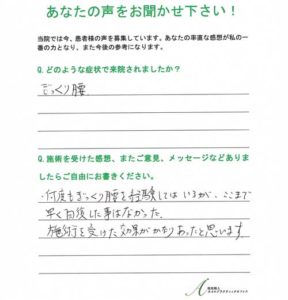 あなたの声をお聞かせ下さい！
当院では今、患者様の声を募集しています。あなたの率直な感想が私の一
番の力となり、また今後の参考になります。
Q.どのような症状で来院されましたか？
ぎっくり腰
Q.施術を受けた感想、またご意見、メッセージなどありま
したらご自由にお書きください。
・何度もぎっくり腰を経験してはいるが、ここまで
早く回復した事はなかった。
施術を受けた効果がかなりあったと思います。